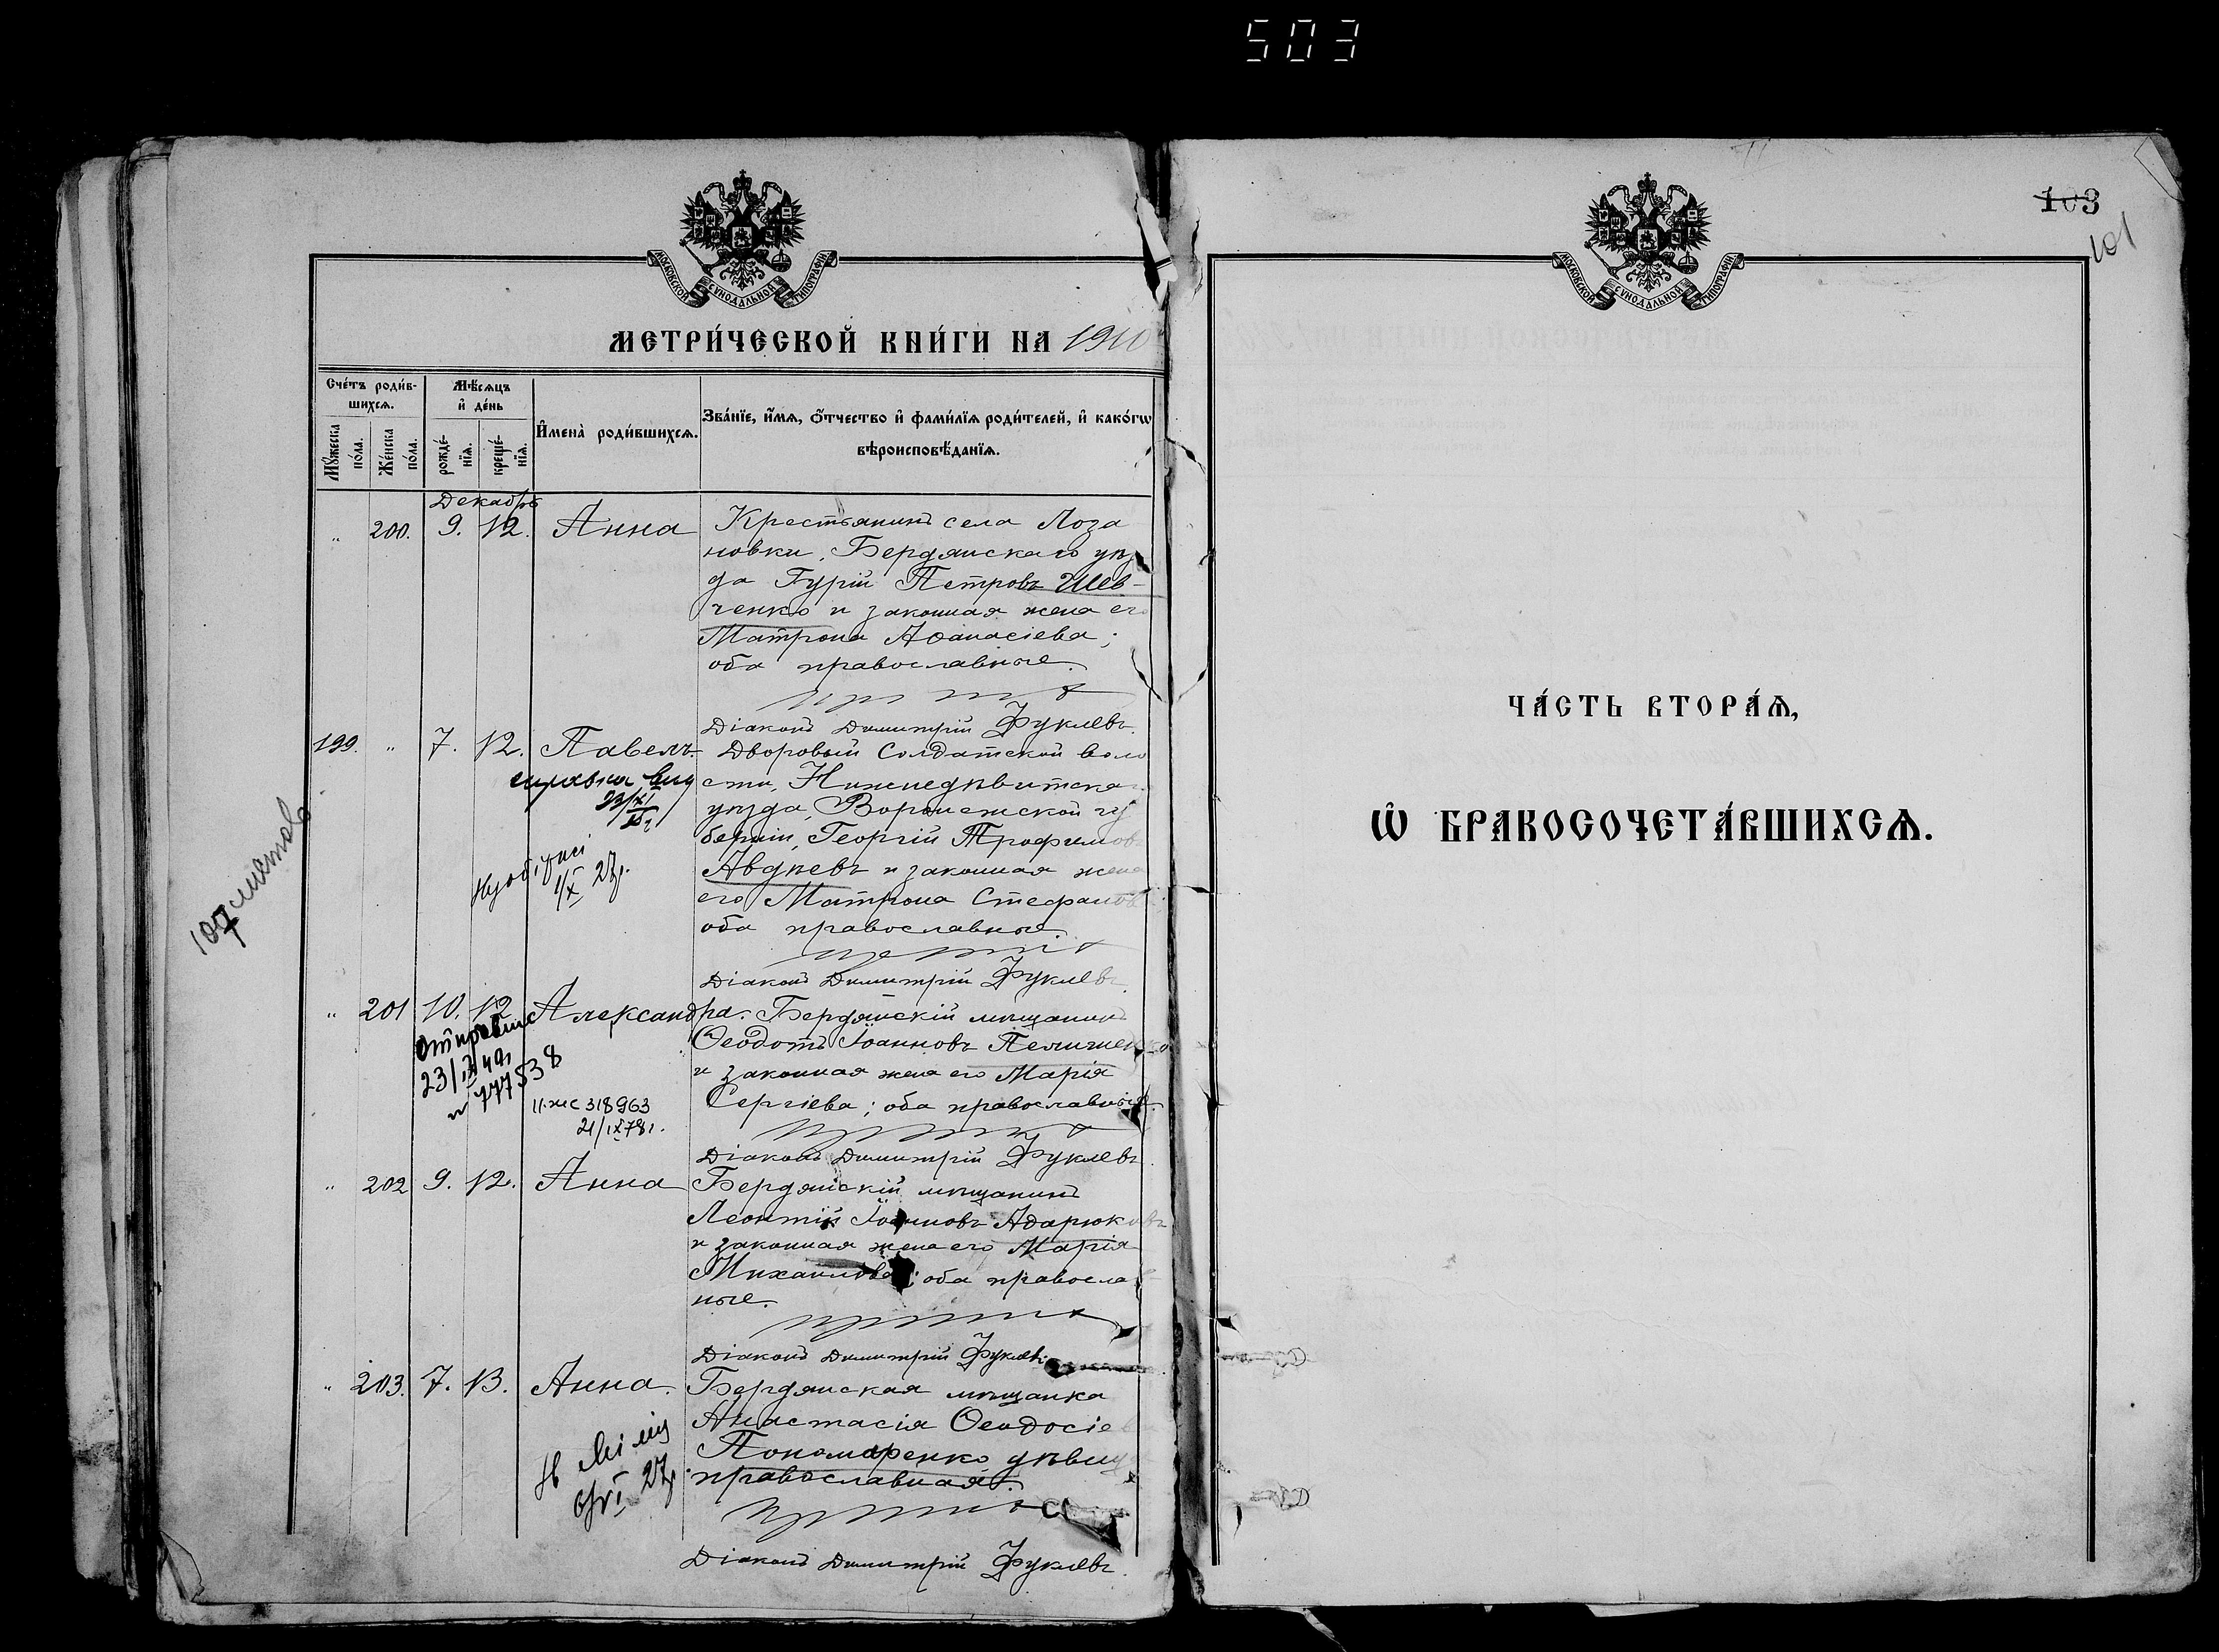 503
МОСКОВСКОЙ СѴНОДАЛЬНОЙ ТИПОГРАФІИ
МЕТРИ́ЧЕСКОЙ КНИ́ГИ НА 1910
Сче́тъ роди́вшихсѧ.
Мꙋ́жеска по́ла.
Же́нска по́ла.
Мѣ́сѧцъ и҆ де́нь
рожде́нїѧ.
креще́нїѧ.
И҆мена̀ роди́вшихсѧ.
Зва́нїе, и҆́мѧ, ѻ҆́тчество и҆ фами́лїѧ роди́телей, и҆ како́гѡ
вѣроисповѣ́данїѧ.
Декабрь
" 200. 9. 12. Анна Крестьянинъ села Лоза
новки, Бердянскаго уѣз
да Гурій Петровъ Шев-
ченко и законная жена его
Матрона Аѳанасіева;
оба православные.
Діаконъ Димитрій Фуклевъ.
199. " 7. 12. Павелъ Дворовый Солдатской воло
сти, Нижнедѣвитска
уѣзда, Воронежской гу
берніи, Георгій Трофимов
Авдѣевъ и законная жена
его Матрона Стефанов
оба православные.
Діаконъ Димитрій Фуклевъ.
23/XI
1/X 27р.
107 листов
" 201 10. 12 Александра. Бердянскій мѣщанинъ
Ѳеодотъ Іоанновъ
и законная жена его Марія
Сергіева; оба православные.
23/IX
777538
318963
21/IX 78г.
Діаконъ Димитрій Фуклевъ
" 202 9. 12. Анна Бердянскій мѣщанинъ
Леонтій Іоанновъ Адарюковъ
и законная жена его Марія
Михаилова; оба православ
ные.
Діаконъ Димитрій Фуклевъ
" 203. 7. 13. Анна. Бердянская мѣщанка
Анастасія Ѳеодосіе
Пономаренко дѣвиц
православная.
27р.
Діаконъ Димитрій Фуклевъ.
МОСКОВСКОЙ СѴНОДАЛЬНОЙ ТИПОГРАФІИ
103
101
ЧА́СТЬ ВТОРА́Ѧ,
Ѡ҆ БРАКОСОЧЕТА́ВШИХСѦ.